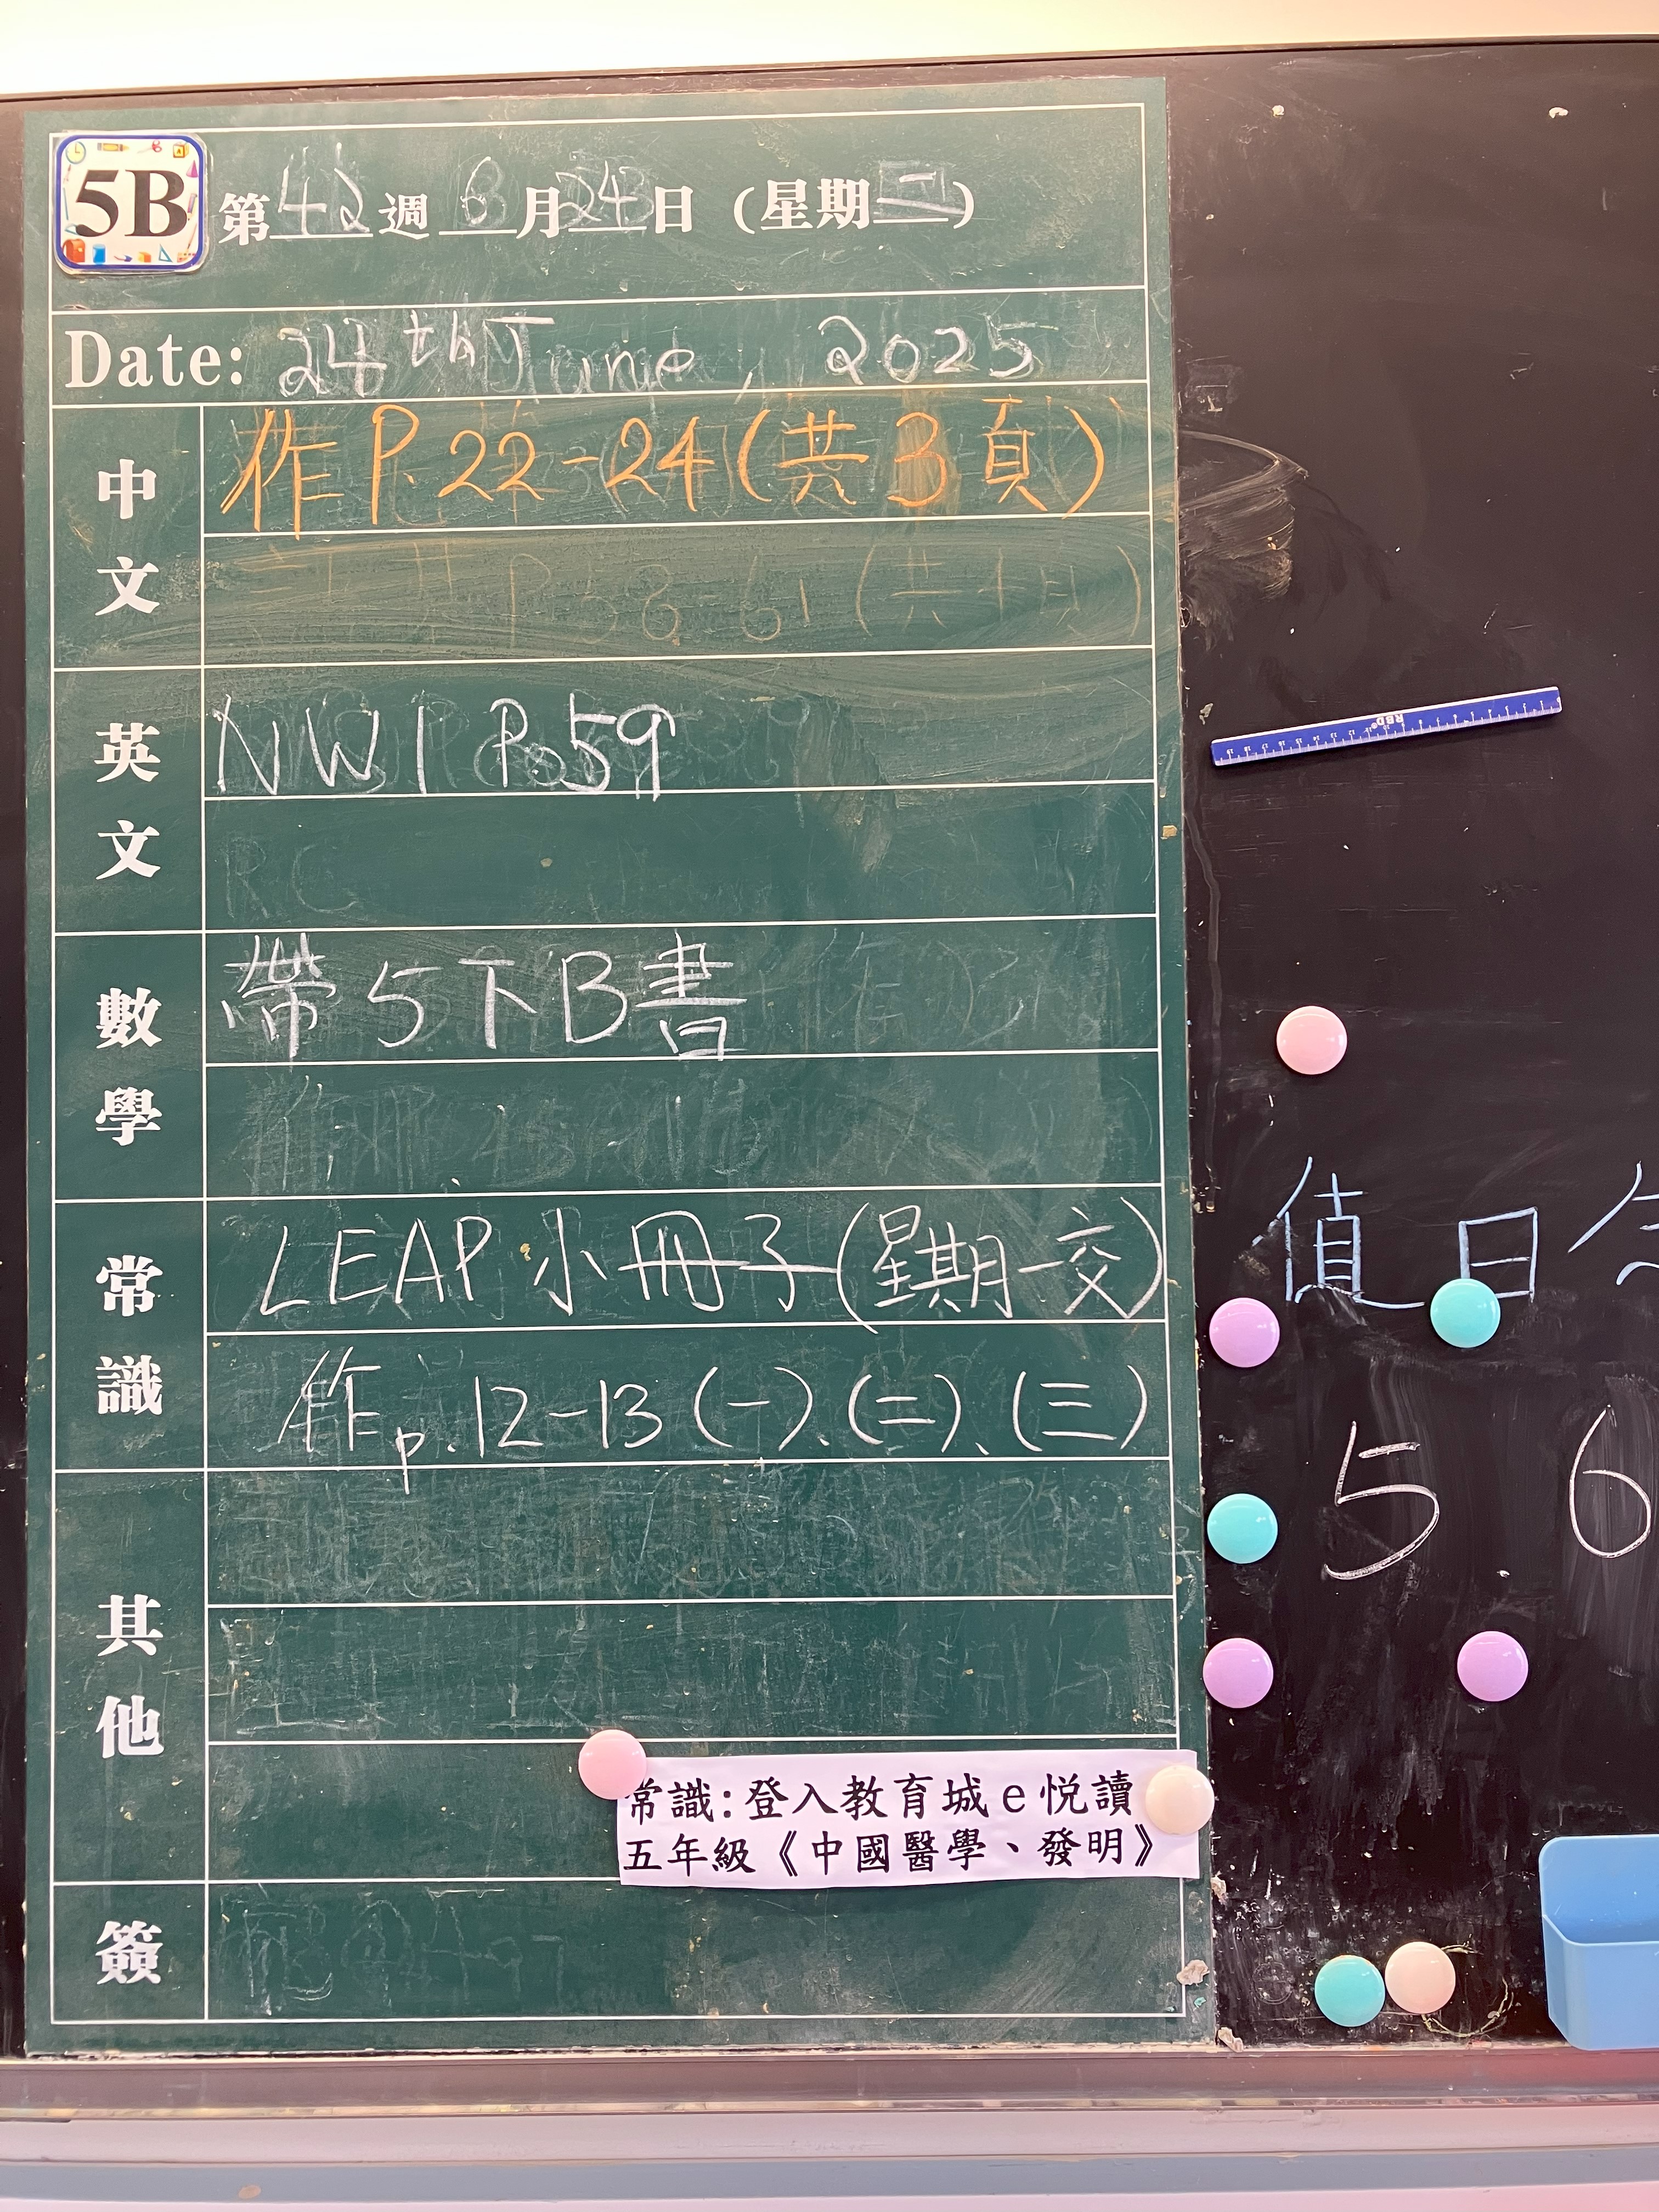 5B 第42週 6月24日 (星期二)
Date: 24th June, 2025
中文
作 P.22-24(共3頁)
英文
NW1 P.59
數學
帶5下B書
常識
LEAP 小冊子(星期一交)
作p.12-13(一)、(二)、(三)
其他
常識:登入教育城e悦讀
五年級《中國醫學、發明》
簽
RBD
值日
5 6